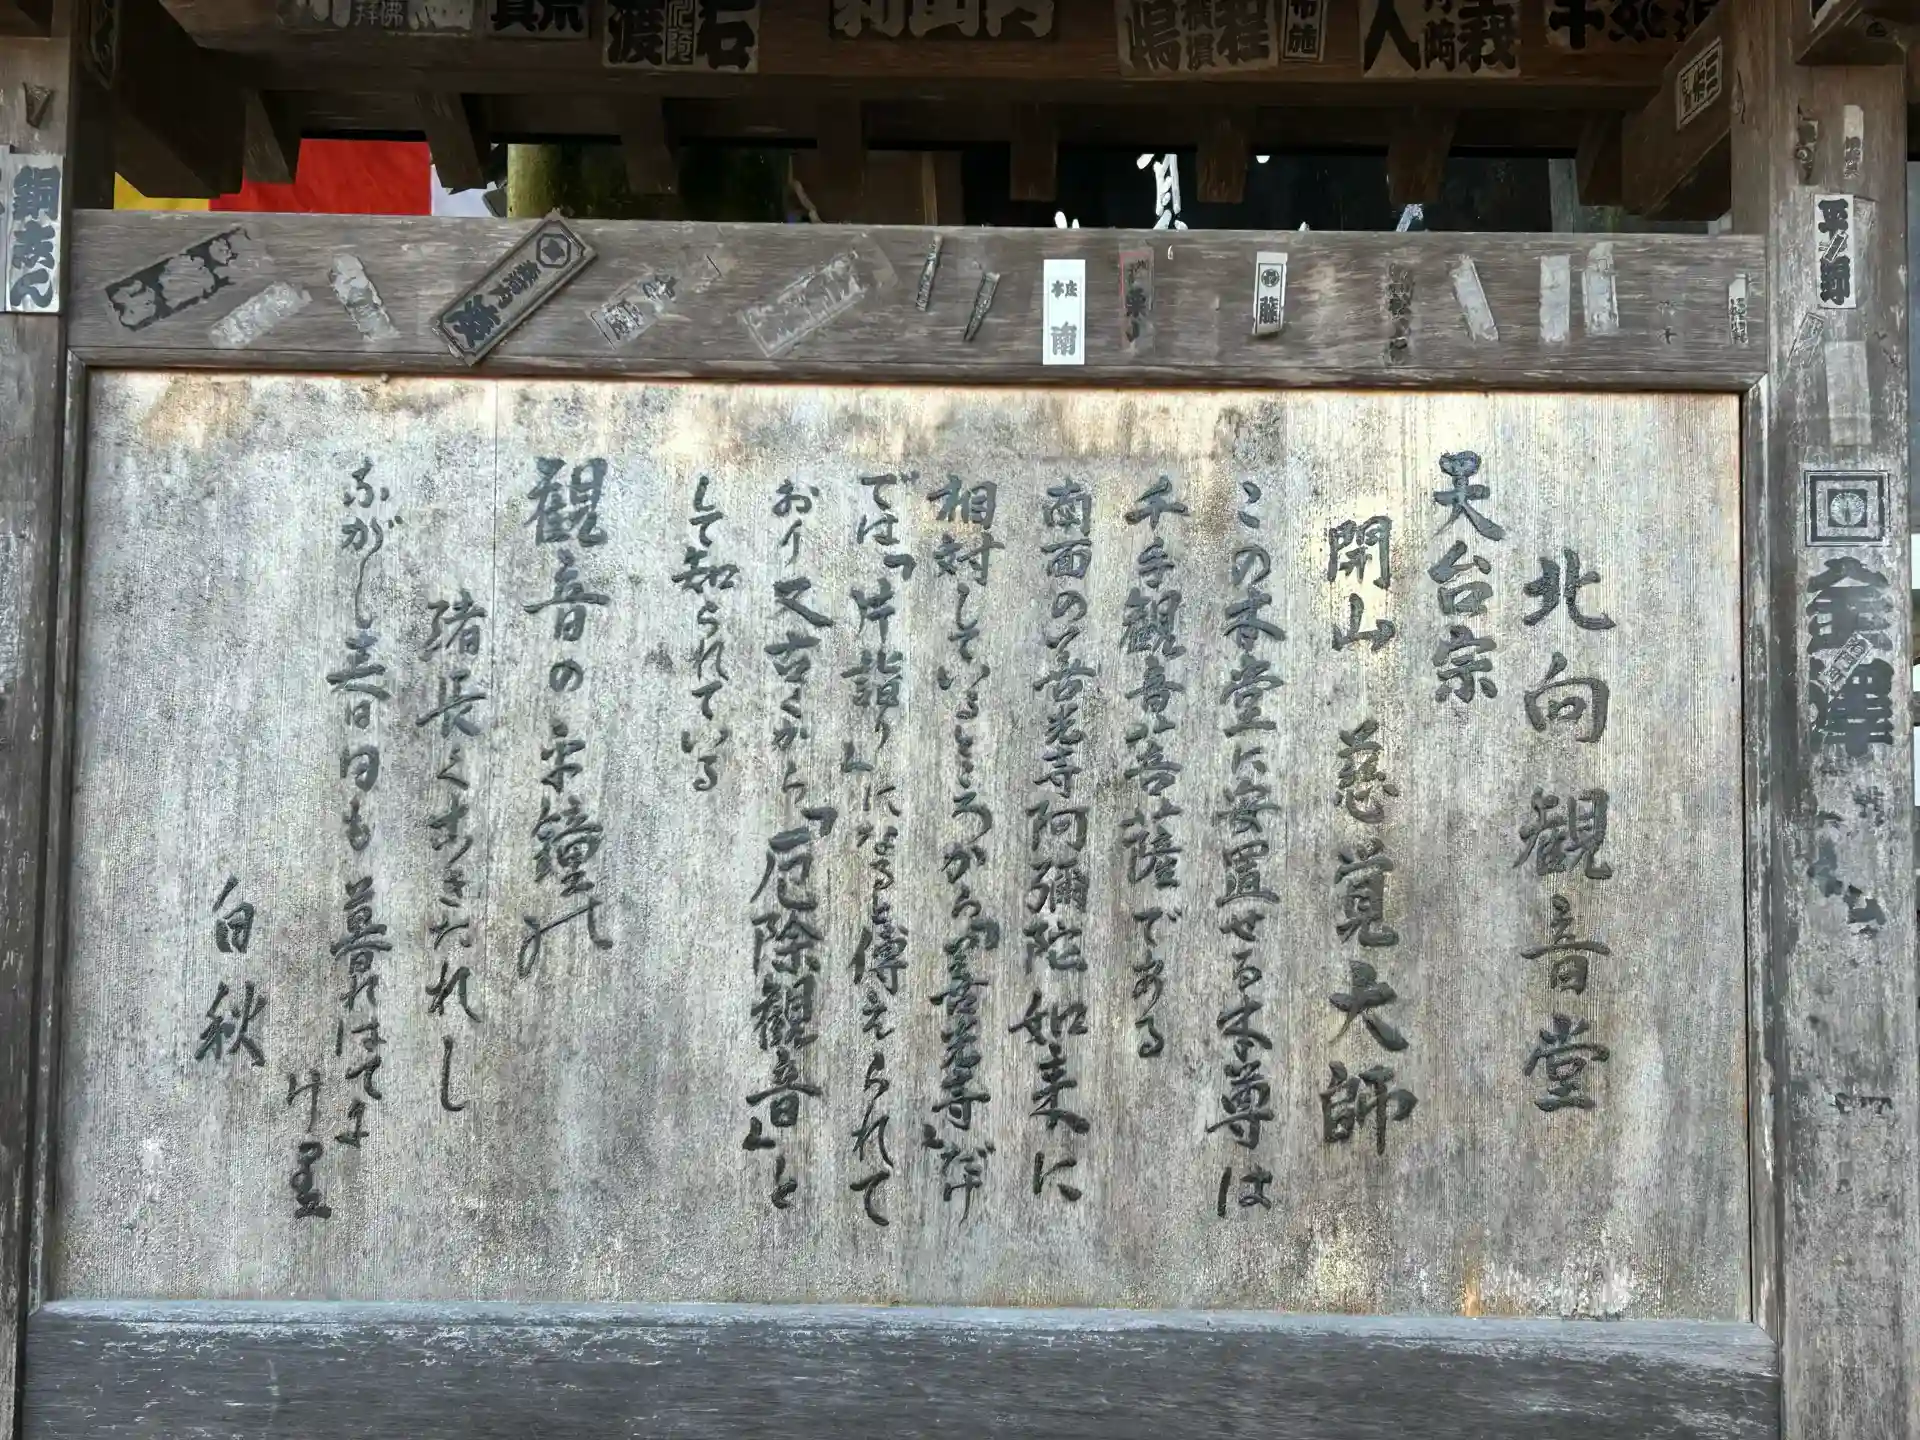 北向観音堂
天台宗
開山 慈覚大師
この本堂に安置せる本尊は
千手観音菩薩である
南面の善光寺阿彌陀如来に
相対しているところから「善光寺」だけ
では「片詣り」になると傳えられて
おり又古くから「厄除観音」と
して知られている
観音の
鐘の
緒長く
たれし
ながし春日も暮れはてに
け里
白秋
銅
南
藤
平野
金澤
石渡